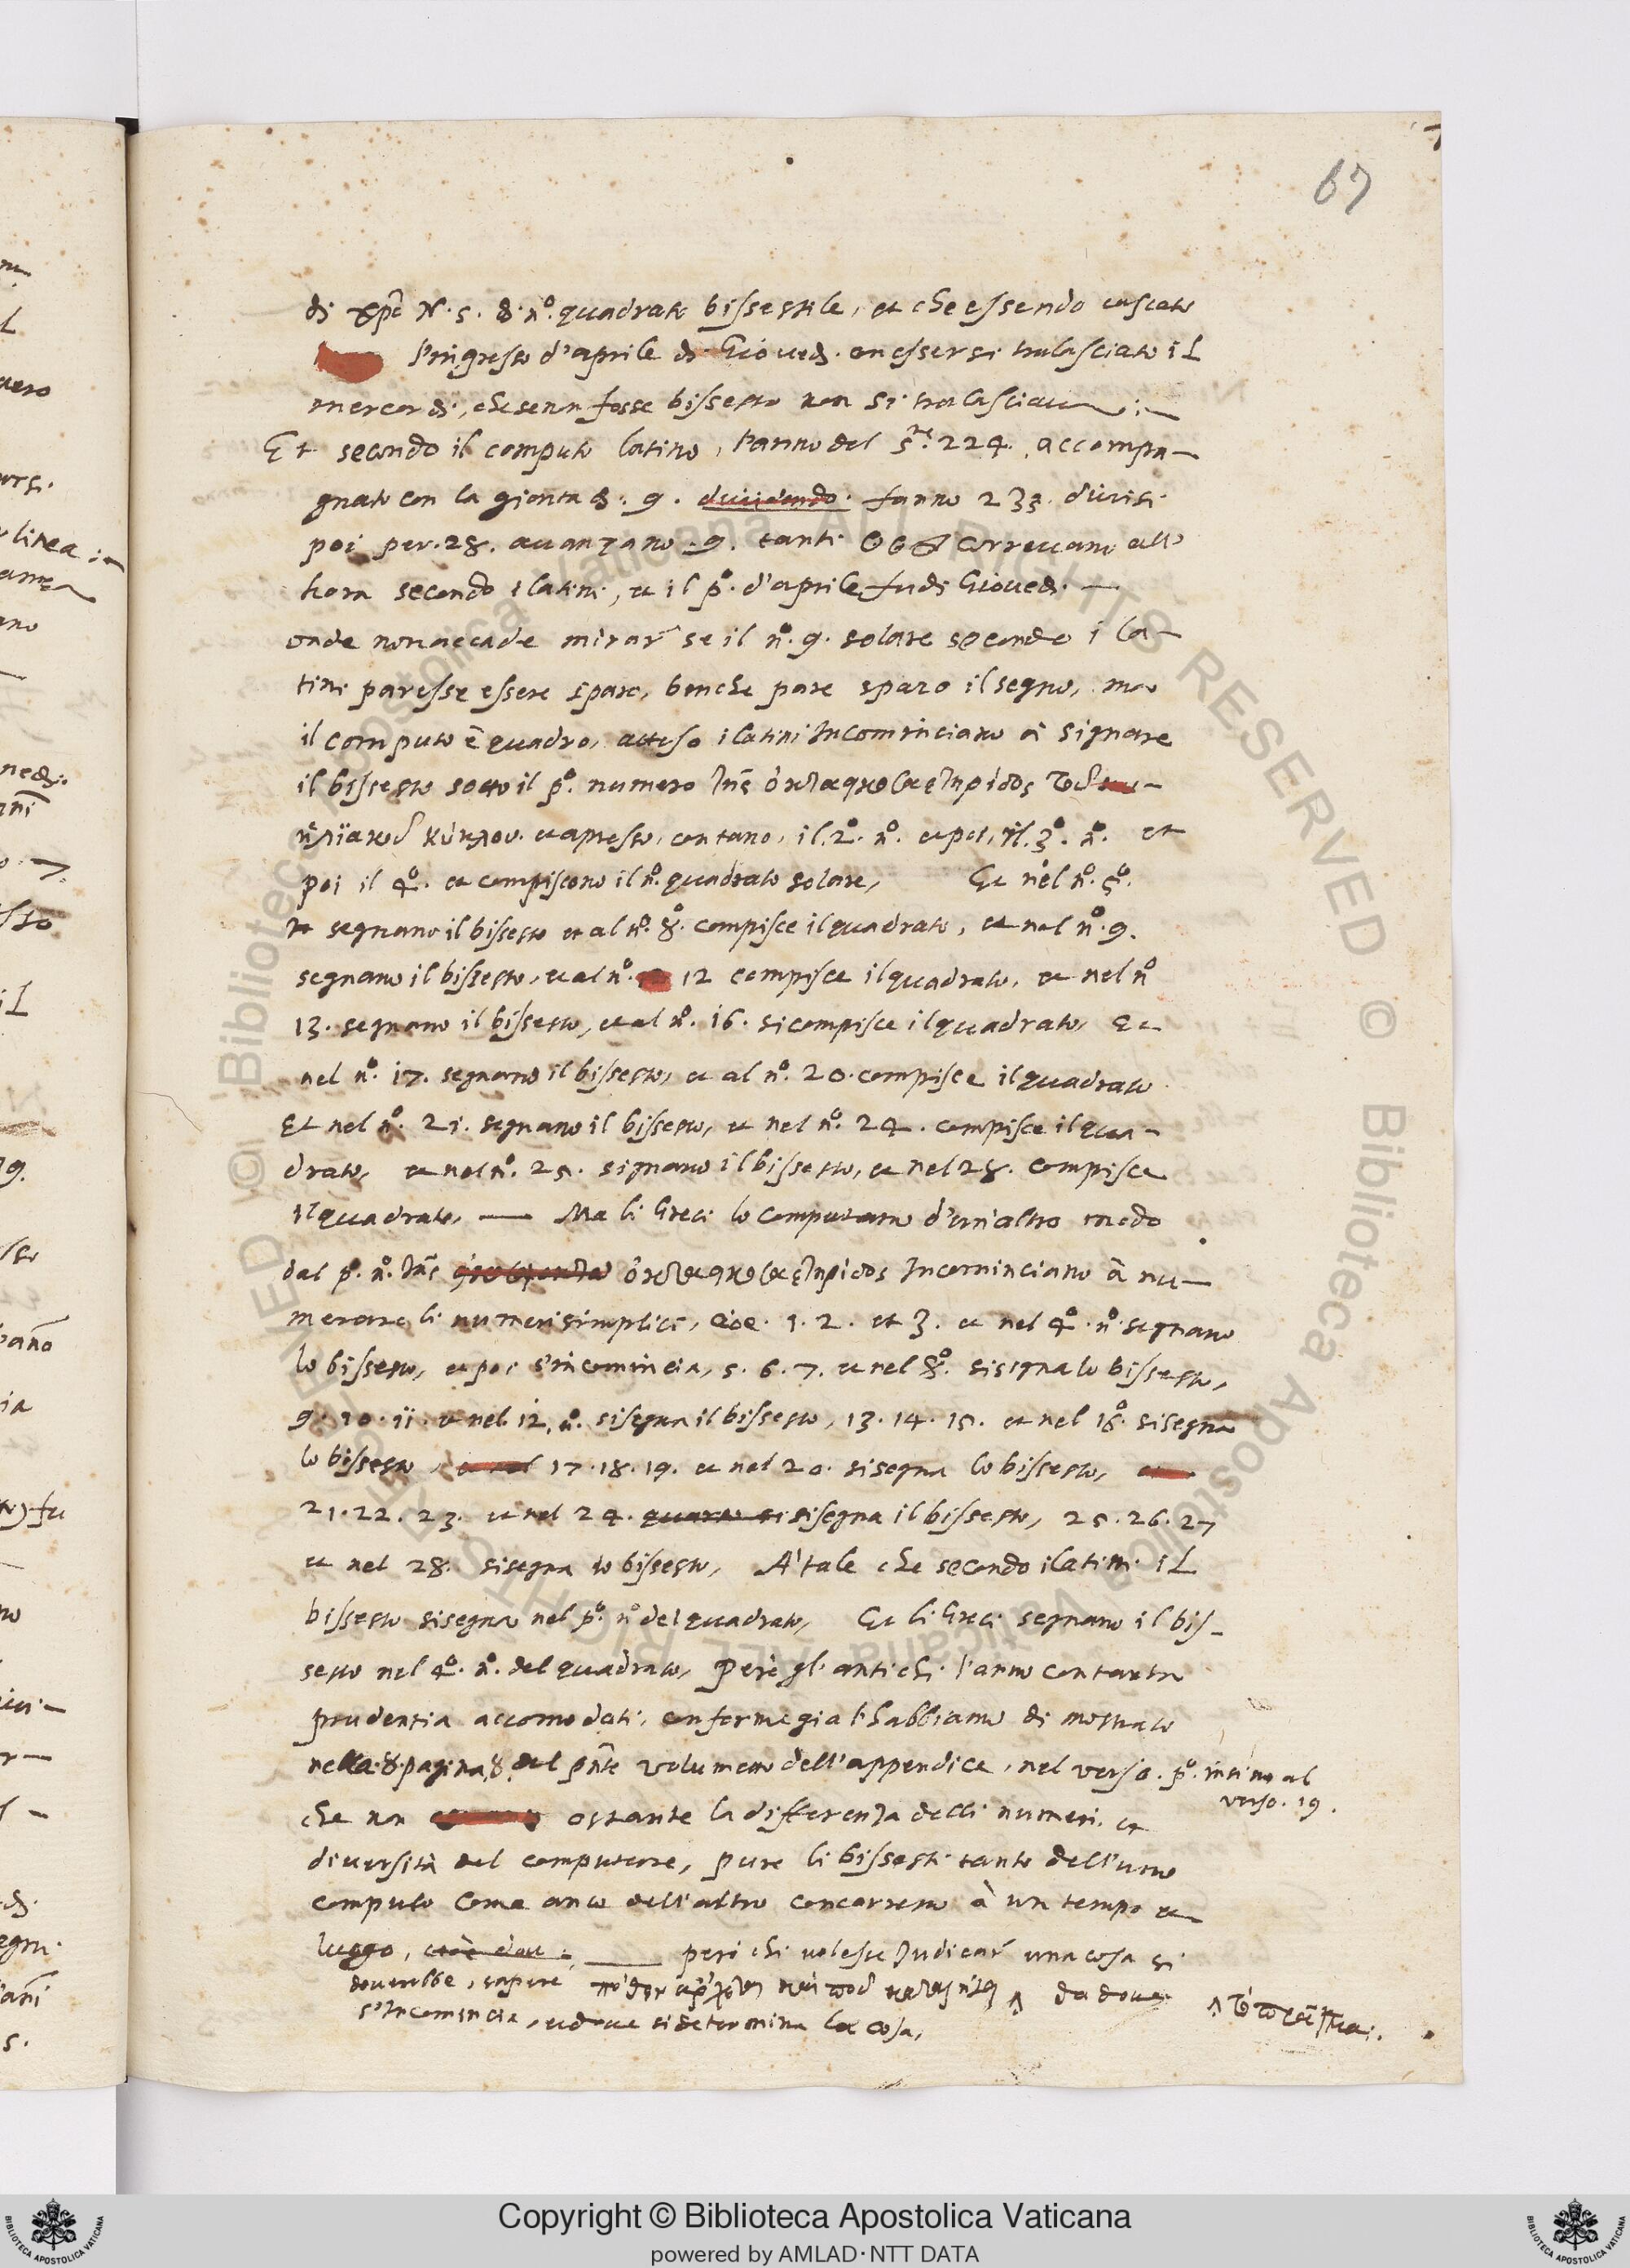 67
di xp̄o N. S. di n.º quadrato bissestile, et che essendo cascato
l'ingresso d'aprile di Giovedi. con essersi tralasciato il
mercordi, che se non fosse bissesto non si tralasciava :—
Et secondo il computo latino, l'anno del s.re 224. accompa-
gnato con la gionta di. 9. dividendo. fanno 233. divisi
poi per. 28. avanzano .9. tanti correvano all'
hora secondo i latini, et il p.º d'aprile fu di Giovedi. —
onde non accade mirar se il n.º 9. solare secondo i la-
tini paresse essere sparo, benche pare sparo il segno, ma
il computo è quadro, atteso i latini Incominciano à signare
il bissesto sotto il p.º numero τῆς ὀκταικοσαετηρίδος τοῦ
ἡλϊακοῦ κύκλου. et apresso, contano, il 2.º n.º et poi, il 3.º n.º et
poi il 4.º et compiscono il n.º quadrato solare, Et nel n.º 5.º
segnano il bissesto et al n.º 8.º compisce il quadrato, et nel n.º 9.
segnano il bissesto, et al n.º 12 compisce il quadrato, et nel n.º
13. segnano il bissesto, et al n.º 16. si compisce il quadrato, Et
nel n.º 17. segnano il bissesto, et al n.º 20. compisce il quadrato
Et nel n.º 21. segnano il bissesto, et nel n.º 24. compisce il qua-
drato, et nel n.º 25. signano il bissesto, et nel 28. compisce
il quadrato, — Ma li Greci lo computano d'un'altro modo
dal p.º n.º τῆς ὀκταικοσαετηρίδος Incominciano à nu-
merare li numeri simplici, cioe. 1. 2. et 3. et nel 4.º n.º segnano
lo bissesto, et poi s'incomincia, 5. 6. 7. et nel 8.º si signa lo bissesto,
9. 10. 11. et nel 12. n.º si segna il bissesto, 13. 14. 15. et nel 16.º si segna
lo bissesto, et nel 17. 18. 19. et nel 20. si segna lo bissesto,
21. 22. 23. et nel 24. si segna il bissesto, 25. 26. 27
et nel 28. si segna lo bissesto, A' tale che secondo i latini il
bissesto si segna nel p.º n.º del quadrato, Et li Greci segnano il bis-
sesto nel 4.º n.º del quadrato, però gl'antichi l'anno con tanta
prudentia accomodati, conforme gia l'habbiamo dimostrato
nella. 8. pagina, del pn̄te volumetto dell'appendice, nel verso. p.º insino al
verso. 19.
che non ostante la differenza delli numeri. et
diversità del computare, pure li bissesti tanto dell'uno
computo come anco dell'altro concorreno à un tempo et
luogo, però chi volesse Judicar una cosa si
doverebbe, sapere πόθεν ἄρχεται καὶ ποῦ καταντᾷ ^ da dove
s'Incomincia, et dove si determina la cosa,